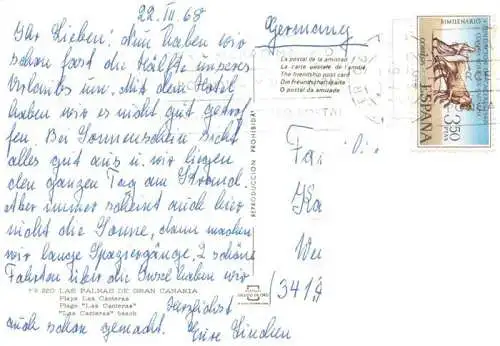 22. III. 68
Ihr Lieben! Nun haben wir
schon fast die Hälfte unseres
Urlaubs um. Mit dem Hotel
haben wir es nicht gut getrof-
fen. Bei Sonnenschein sieht
alles gut aus u. wir liegen
den ganzen Tag am Strand.
Aber immer scheint auch hier
nicht die Sonne, dann machen
wir lange Spaziergänge, 2 schöne
Fahrten über die Insel haben wir
auch schon gemacht.
Herzlichst
Eure
Nº 220 LAS PALMAS DE GRAN CANARIA
Playa Las Canteras
Plage "Las Canteras"
"Las Canteras" beach
REPRODUCCION PROHIBIDA
Germany
La postal de la amistad
La carte postale de l'amitié
The friendship post card
Die Freundschaftskarte
O postal da amizade
BIMILENARIO
CORREOS
ESPAÑA
3,50
PTAS
Fa
Ka
(341